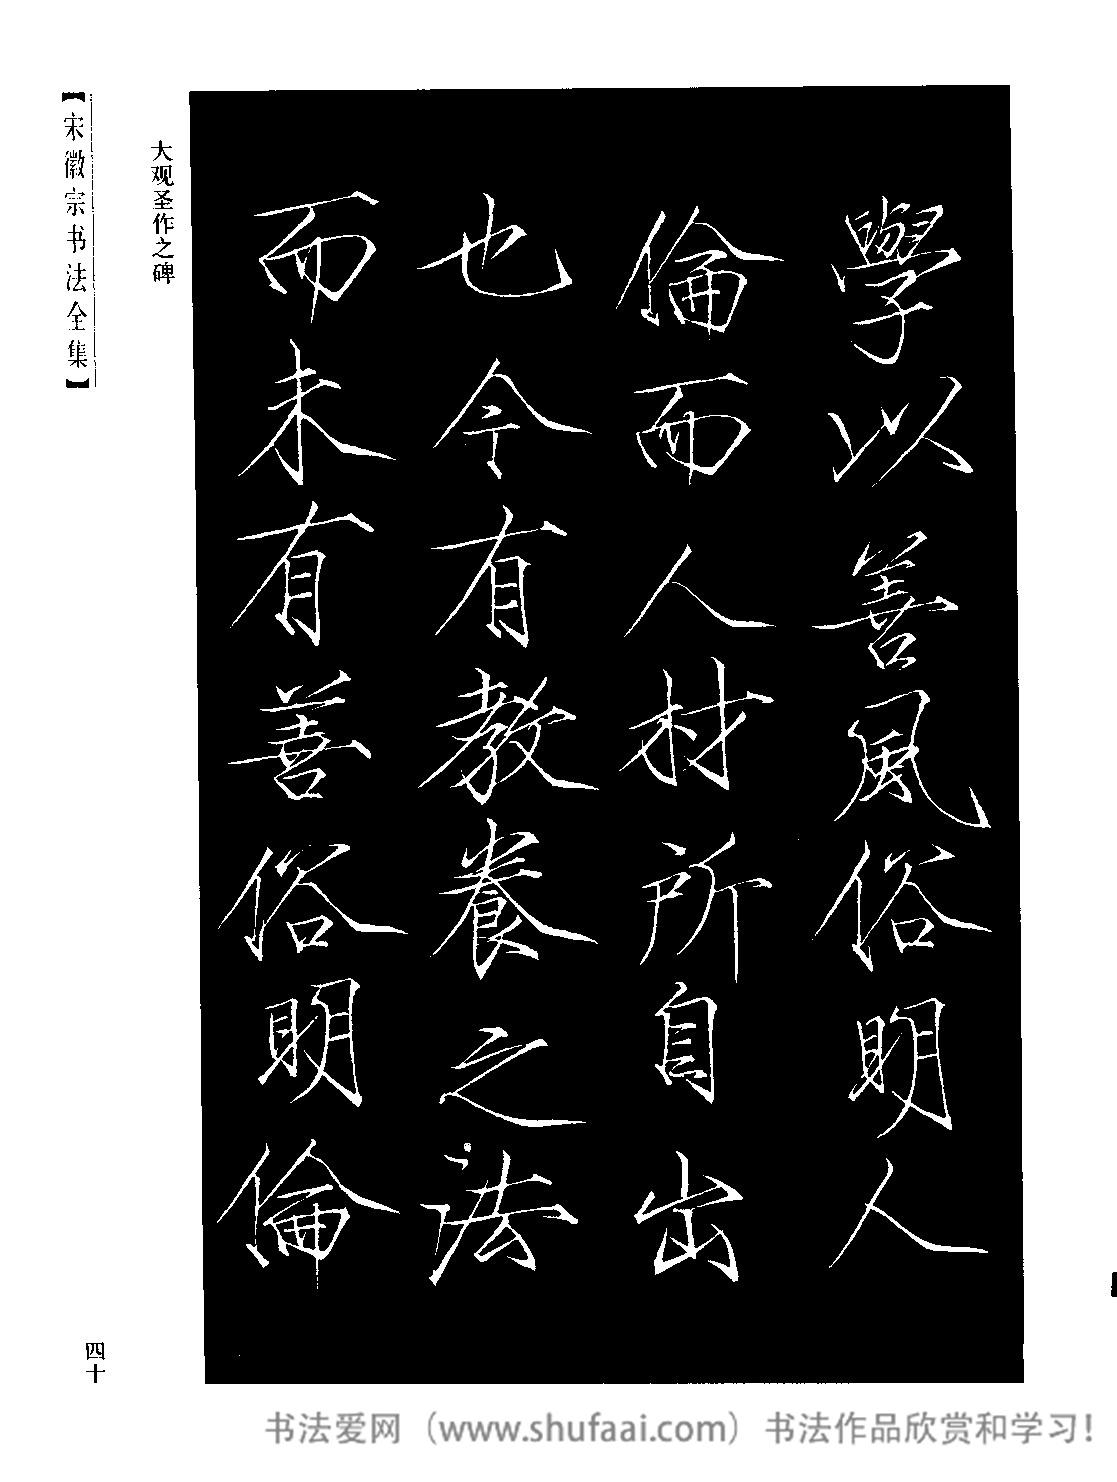 學以善風俗明人
倫而人材所自出
也今有教養之法
而未有善俗明倫
大观圣作之碑
【宋徽宗书法全集】
四十
书法爱网（www.shufaai.com）书法作品欣赏和学习！